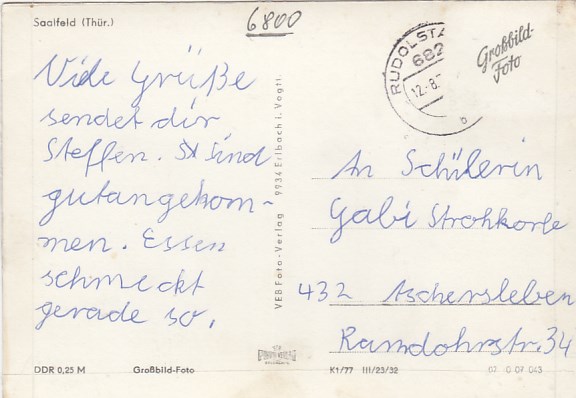 Saalfeld (Thür.)
6800
Viele Grüße
sendet dir
Steffen. St sind
gutangekom-
men. Essen
schmeckt
gerade so.
VEB Foto-Verlag 9934 Erlbach i. Vogtl.
RUDOLSTA
682
12.-8.
b
Großbild-
Foto
An Schülerin
Gabi Strohkorb
432 Aschersleben
Ramdohrstr. 34
DDR 0,25 M
Großbild-Foto
K1/77 III/23/32
07 0 07 043